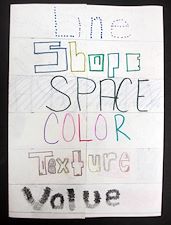 Line
Shape
SPACE
COLOR
Texture
Value